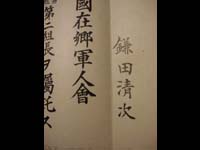 鎌田清次
國在郷軍人會
第二組長ヲ囑託ス